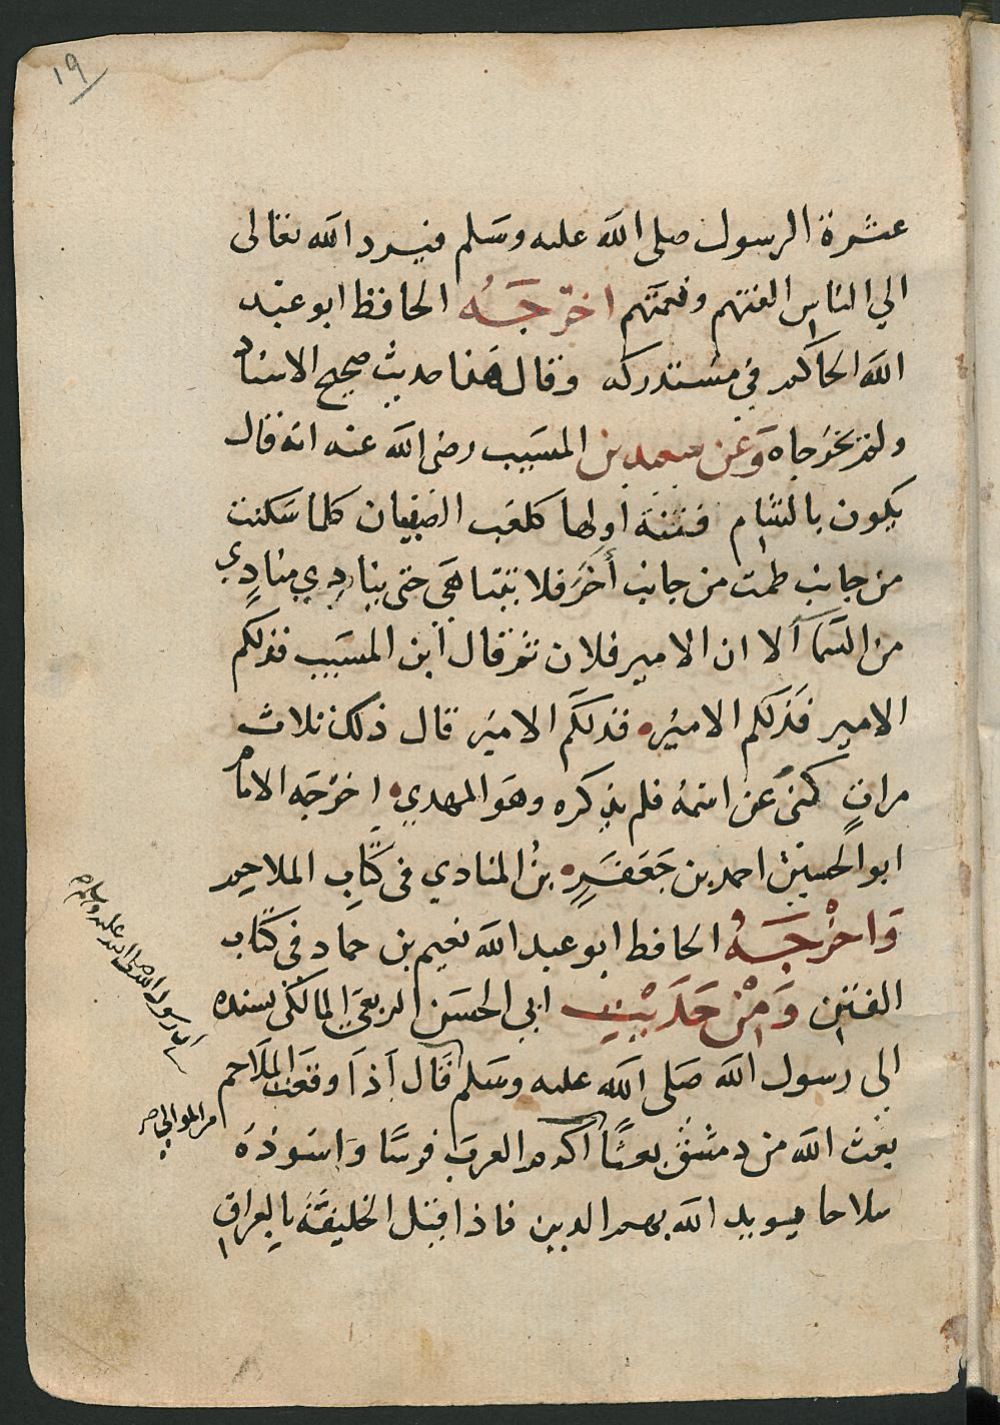 ١٩
عشرة الرسول صلى الله عليه وسلم فيرد الله تعالى
الي الناس الفتهم ونعمتهم اخرجه الحافظ ابو عبد
الله الحاكم في مستدركه وقال هذا حديث صحيح الاسناد
ولم يخرجاه وعن سعيد بن المسيب رضى الله عنه انه قال
يكون بالشام فتنة اولها كلعب الصبيان كلما سكنت
من جانب طمت من جانب أخر فلا تتناهى حتى ينادي منادي
من السما ألا ان الامير فلان ثم قال ابن المسيب فذلكم
الامير فذلكم الامير فذلكم الامير قال ذلك ثلاث
مرات كنى عن اسمه فلم يذكره وهو المهدي اخرجه الامام
ابو الحسين احمد بن جعفر بن المنادي في كتاب الملاحم
واخرجه الحافظ ابو عبد الله نعيم بن حماد في كتاب
الفتن ومن حديث ابي الحسن الربعي المالكي بسنده
الى رسول الله صلى الله عليه وسلم قال اذا وقعت الملاحم
بعث الله من دمشق بعثا اكرم العرب فرسا واسوده
سلاحا يويد الله بهم الدين فاذا قتل الخليفة بالعراق
ان رسول الله صلى الله عليه وسلم
من الموالي صح